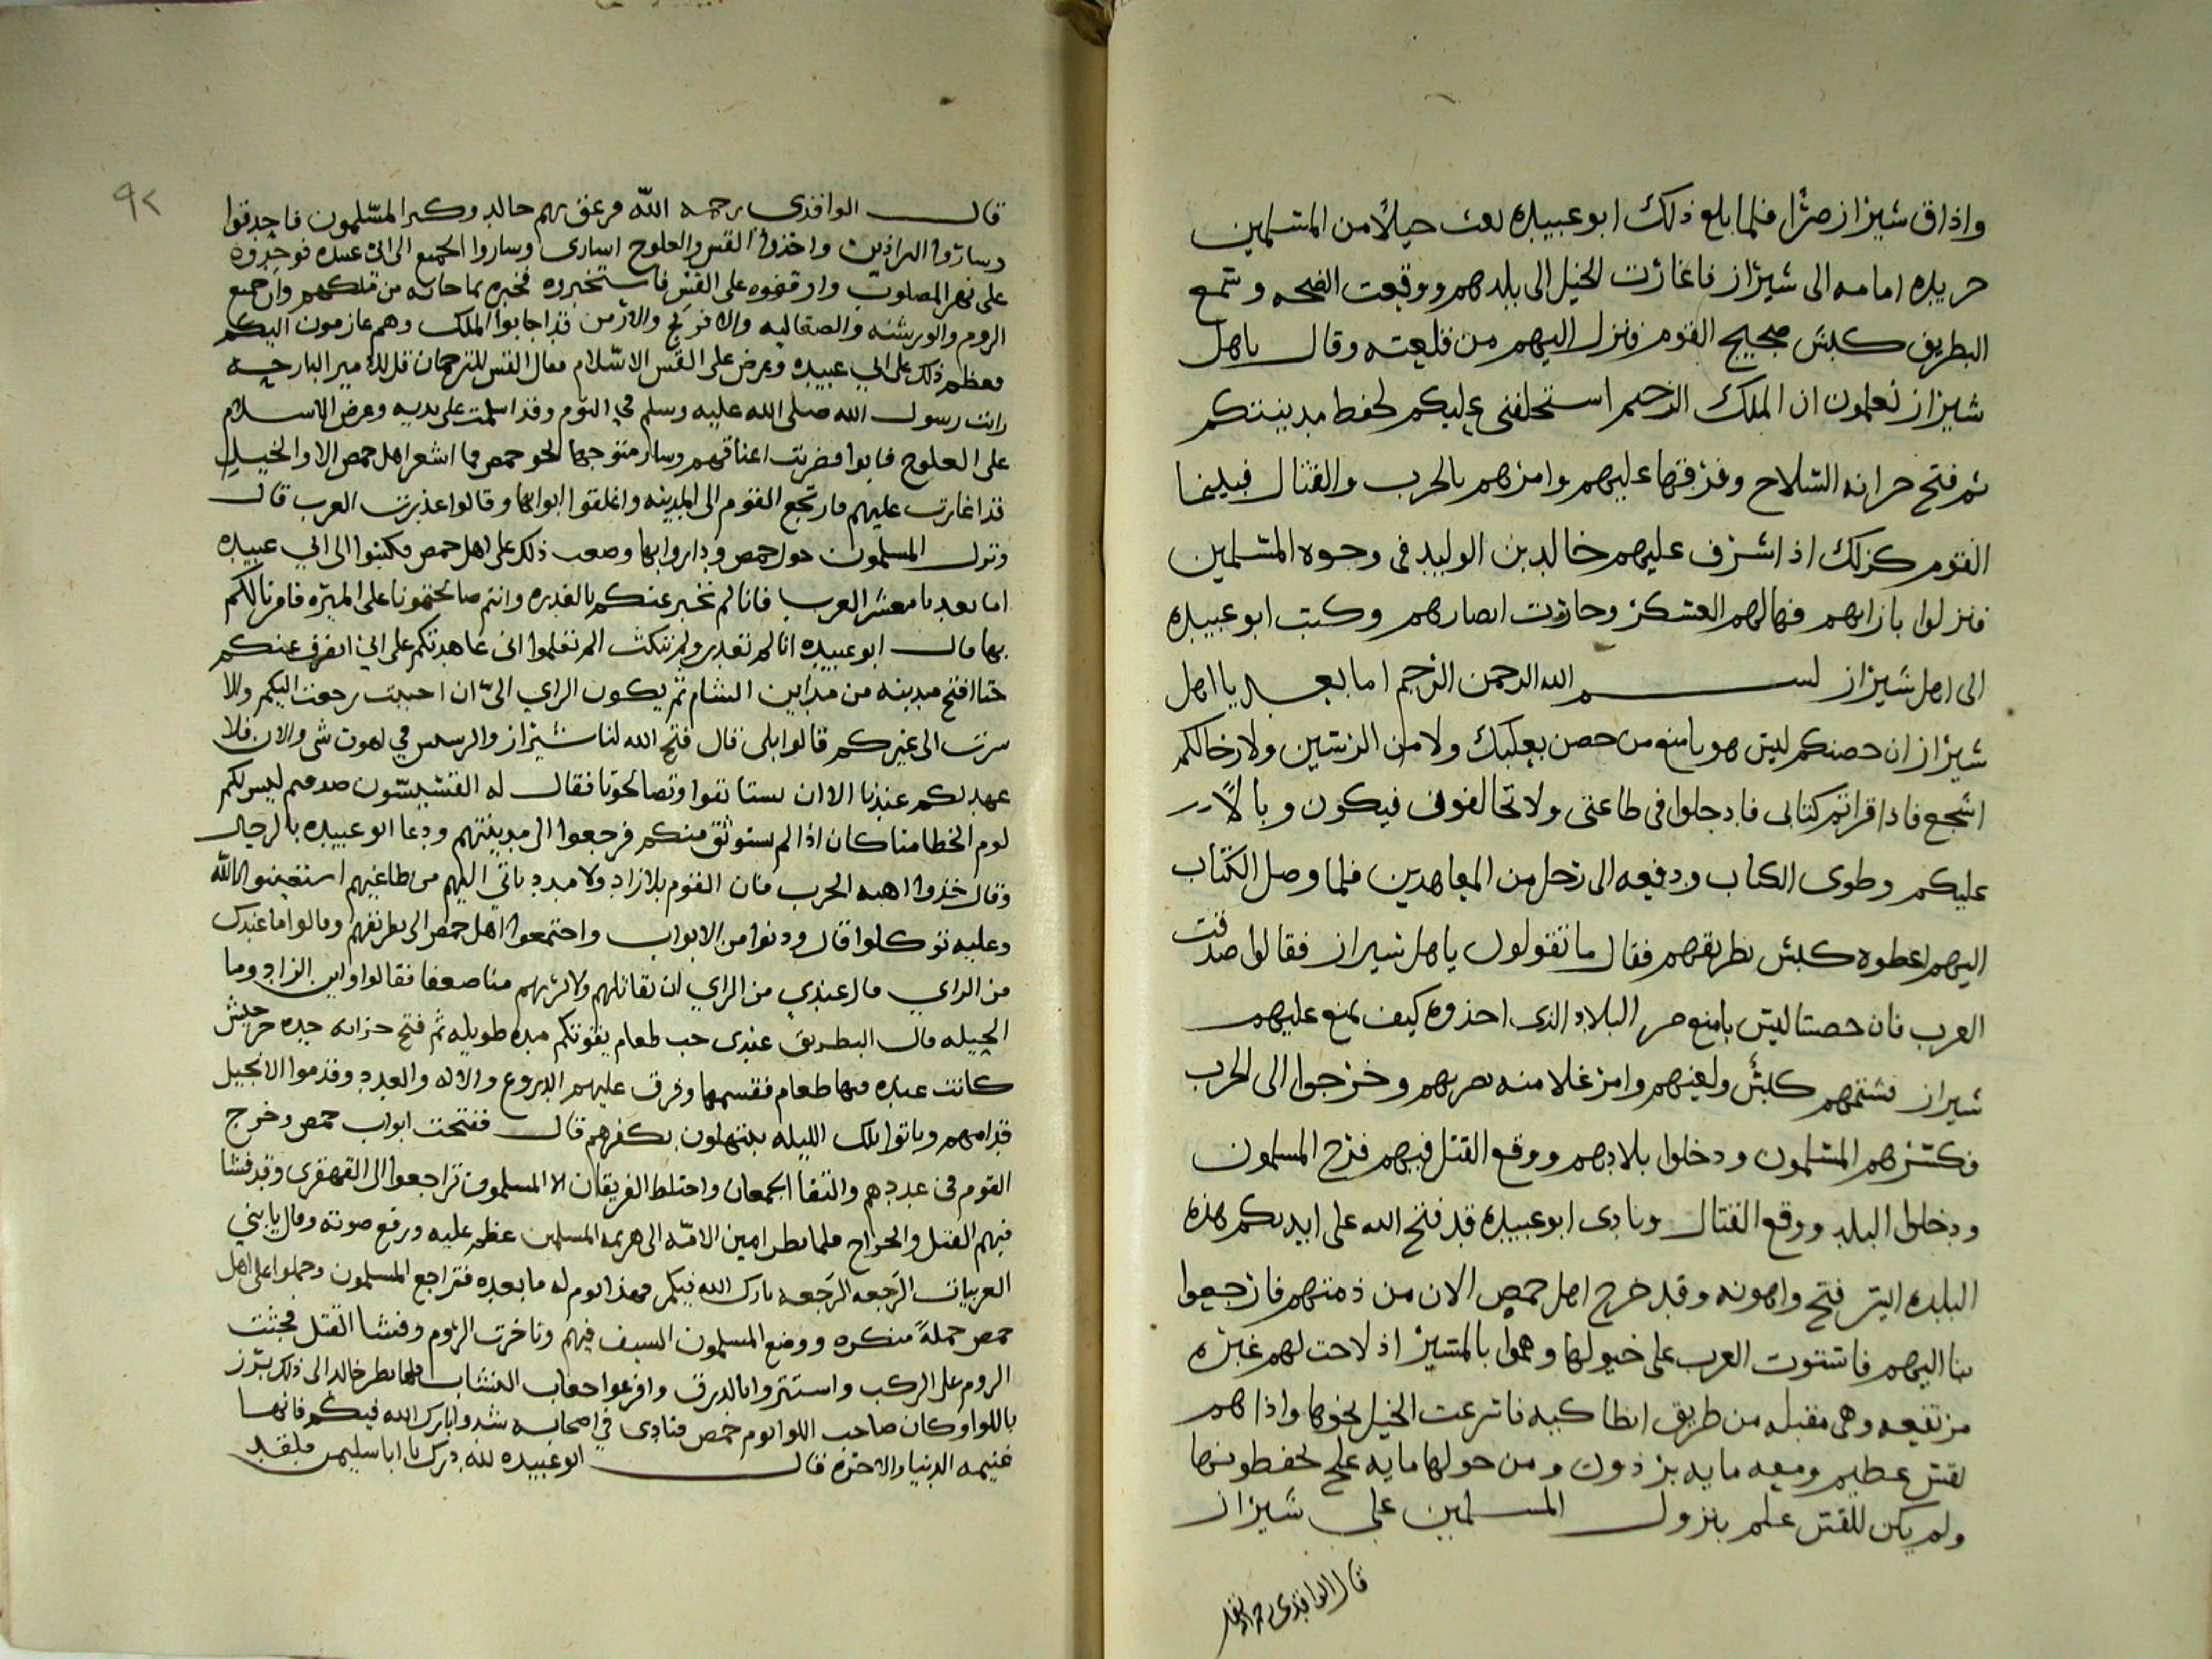 واذاق شيزاز صرًّا فلما بلغ ذلك ابوعبيده بعث خيلًا من المسلمين
جريده امامه الى شيزاز فاغارت الخيل الى بلدهم ووقعت الضجه وسمع
البطريق كلبش ضجيج القوم فنزل اليهم من قلعته وقال ياهل
شيزاز تعلمون ان الملك الرحيم استخلفنى عليكم لحفظ مدينتكم
ثم فتح خزانه السّلاح وفرّقها عليهم وامرهم بالحرب والقتال فبينما
القوم كذلك اذ اشرف عليهم خالد بن الوليد فى وجوه المسلمين
فنزلوا بازايهم فهالهم العسكر وحارت ابصارهم وكتب ابوعبيده
الى اهل شيزاز بسم الله الرحمن الرحيم اما بعد يااهل
شيزاز ان حصنكم ليس هو بامنع من حصن بعلبك ولا من الرستين ولا رجالكم
اشجع فاذا قراتم كتابى فادخلوا فى طاعتى ولا تخالفونى فيكون وبالًا
عليكم وطوى الكتاب ودفعه الى رجل من المعاهدين فلما وصل الكتاب
اليهم اعطوه كلبش بطريقهم فقال ماتقولون ياهل شيراز فقالوا صدقت
العرب فان حصننا ليس بامنع من البلاد الذى اخذوه كيف نمنع عليهم
شيراز فشتمهم كلبش ولعنهم وامر غلامنه بضربهم وخرجوا الى الحرب
فكسرهم المسلمون ودخلوا بلادهم ووقع القتل فيهم فرح المسلمون
ودخلوا البلد ووقع القتال ونادى ابوعبيده قد فتح الله على ايديكم هذه
البلده ايسر فتح واهونه وقد خرج اهل حمص الان من ذمتهم فارجعوا
بنا اليهم فاستوت العرب على خيولها وهموا بالمسير اذ لاحت لهم غبره
مرتفعه وهى مقبله من طريق انطاكيه فاسرعت الخيل نحوها واذا هم
بقس عظيم ومعه مايه برذون ومن حولها مايه علج يحفظونها
ولم يكن للقس علم بنزول المسلمين على شيزاز
قال الواقدى رحمه الله
٩٢
قال الواقدى رحمه الله فزعق بهم خالد وكبر المسلمون فاحدقوا
وساقوا البراذين واخذوا القس والعلوج اسارى وساروا الجميع الى ابى عبيده فوجدوه
على نهر المصلوب واوقفوه على القس فاستخبروه فخبره بما جابه من ملكهم وان جميع
الروم والورشنه والصقاليه والافرنج والارمن قد اجابوا الملك وهم عازمون اليكم
فعظم ذلك على ابي عبيده وعرض على القس الاسلام فقال القس للترجمان قل للامير البارحه
رايت رسول الله صلى الله عليه وسلم في النوم وقد اسلمت على يديه وعرض الاسلام
على العلوج فابوا فضربت اعناقهم وسار متوجها نحو حمص فما اشعر اهل حمص الا والخيل
قد اغارت عليهم فارتجع القوم الى المدينه واغلقوا ابوابها وقالوا غدرت العرب قال
ونزل المسلمون حول حمص وداروا بها وصعب ذلك على اهل حمص فكتبوا الى ابي عبيده
اما بعد يا معشر العرب فانا لم نخبر عنكم بالغدره وانتم صالحتمونا على الميره فامرنا لكم
بها فقال ابوعبيده انا لم نغدر ولم ننكث الم تعلموا انى عاهدتكم على اني انصرف عنكم
حتا افتح مدينه من مداين الشام ثم يكون الراي الىّ ان احببت رجعت اليكم والا
سرت الى غيركم قالوا بلى قال فتح الله لنا شيزاز والرستن في اهون شى والان فلا
عهد لكم عندنا الا ان تستانفوا وتصالحونا فقال له القسيسون صدقتم ليس لكم
لوم الخطا منا كان اذا لم نستوثق منكم فرجعوا الى مدينتهم ودعا ابو عبيده بالرجال
وقال خذوا اهبه الحرب فان القوم بلا زاد ولا مدد ياتى اليهم من طاغيهم استعينوا بالله
وعليه توكلوا قال ودنوا من الابواب واجتمعوا اهل حمص الى بطريقهم وقالوا ماعندك
من الراي قال عندي من الراي ان نقاتلهم ولا نريهم منا ضعفا فقالوا واين الزاد وما
الحيله قال البطريق عندى حب طعام يقوتكم مده طويله ثم فتح خزانه جده جرجيش
كانت عنده فيها طعام فقسمها وفرق عليهم الدروع والاله والعدد وقدموا الانجيل
قدامهم وباتوا تلك الليله يبتهلون بكفرهم قال ففتحت ابواب حمص وخرج
القوم فى عددهم والتقا الجمعان واختلط الفريقان الا المسلمون تراجعوا الى القهقرى وقد فشا
فيهم القتل والجراح فلما نظر امين الامّه الى هزيمه المسلمين عظم عليه ورفع صوته وقال يا بني
العربيات الرَجعه الرَجعه بارك الله فيكم فهذا يوم له ما بعده فتراجع المسلمون وحملوا على اهل
حمص حملةً منكره ووضع المسلمون السيف فيهم وتاخرت الروم وفشا القتل فجثت
الروم على الركب واستتروا بالدرق وافرغوا جعاب النشاب فلما نظر خالد الى ذلك برز
باللوا وكان صاحب اللوا يوم حمص فنادى في اصحابه شدوا بارك الله فيكم فانها
غنيمه الدنيا والاخره قال ابوعبيده لله درك يا ابا سليمن فلقد